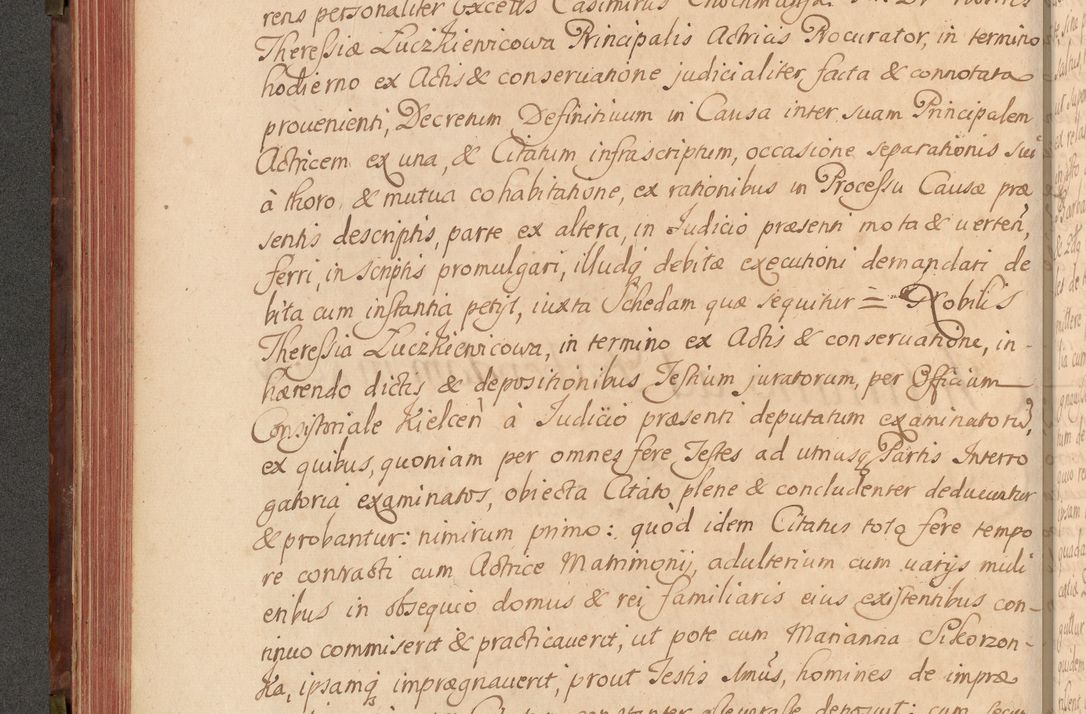 rens personaliter Excells Casimirus
Theressiæ Luczkiewicowa Principalis Actricis Procurator, in termino
hodierno ex Actis & conseruatione judicialiter facta & connotata
prouenienti, Decretum Definitiuum in Causa inter suam Principalem
Actricem ex una, & Citatum infrascriptum, occasione separationis sui
à thoro & mutua cohabitatione, ex rationibus in Processu Causæ præ
sentis descriptis, parte ex altera, in Judicio præsenti mota & verteñ,
ferri, in scriptis promulgari, illudq debitæ executioni demandari de
bita cum instantia petijt, iuxta Schedam quæ sequitur = Nobilis
Theressia Luczkiewicowa, in termino ex Actis & conseruatione, in-
hærendo dictis & depositionibus Testium juratorum, per Officium
Consistoriale Kielceñ à Judicio præsenti deputatum examinatorũ,
ex quibus, quoniam per omnes fere Testes ad utriusq Partis Interro
gatoria examinatos, obiecta Citato plene & concludenter deducuntur
& probantur: nimirum primo: quòd idem Citatus toto fere tempo
re contracti cum Actrice Matrimonij, adulterium cum varijs muli
eribus in obsequio domus & rei familiaris eius existentibus con-
tinuo commiserit & practicauerit, ut pote cum Marianna Sikorzon-
ka, ipsamq imprægnauerit, prout Testis 1mus, homines de impræ
constanter asseuerasse deposuit: cum